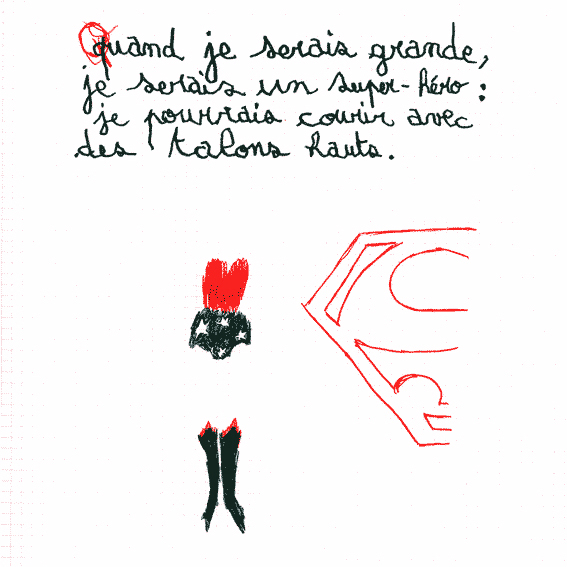 Quand je serais grande,
je serais un super-héro :
je pourrais courir avec
des talons hauts.